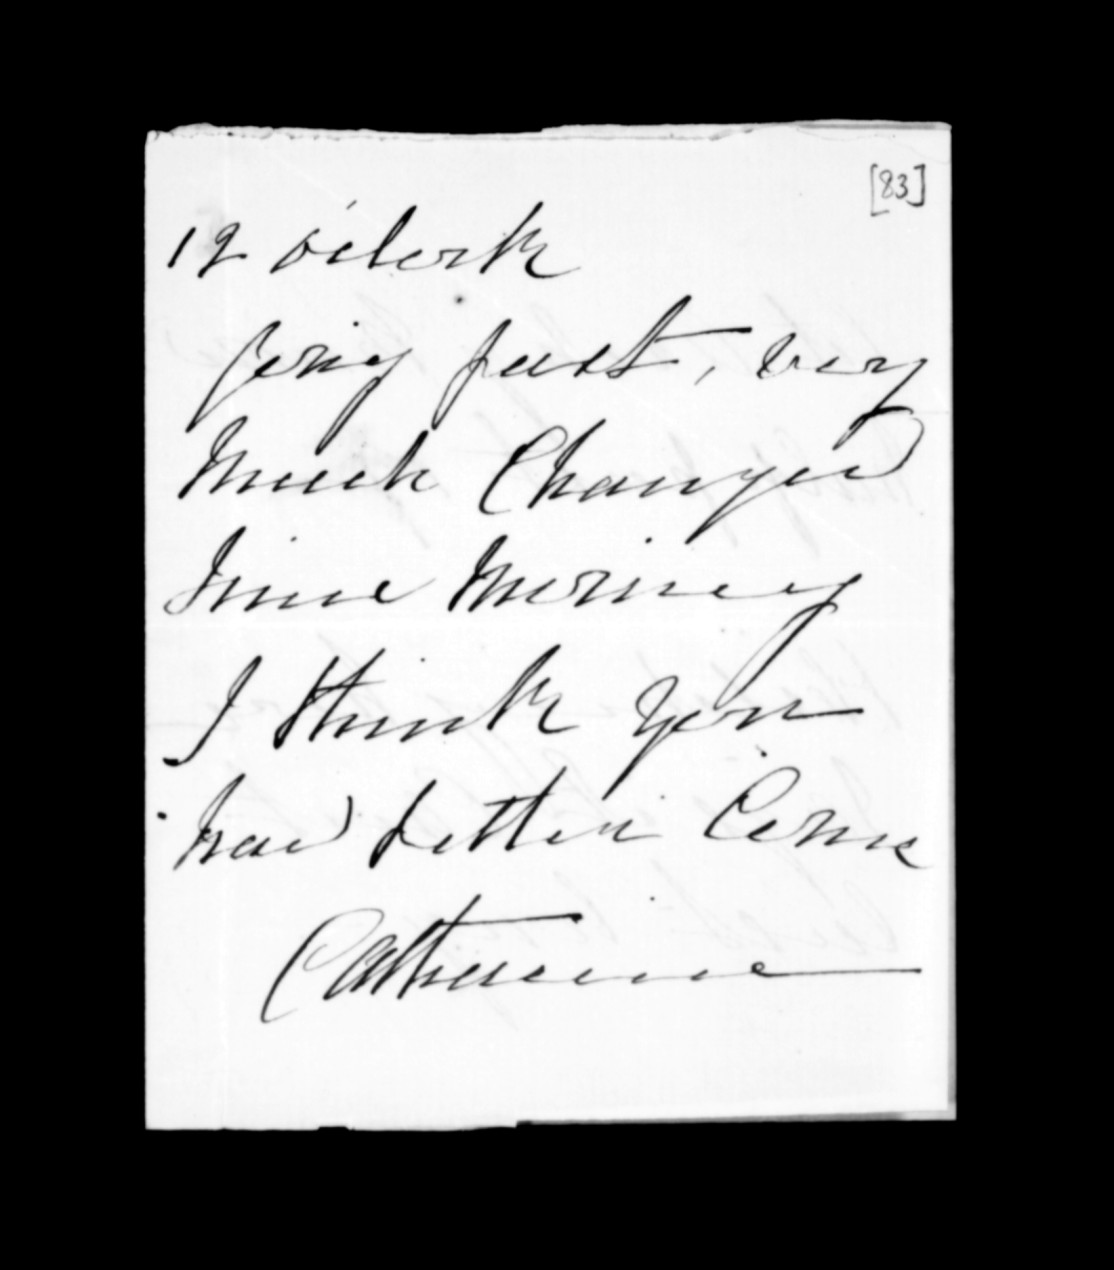 [83]
12 o'clock
Going fast, very
Much Changed
Since Morning
I think you
had better Come
Catherine